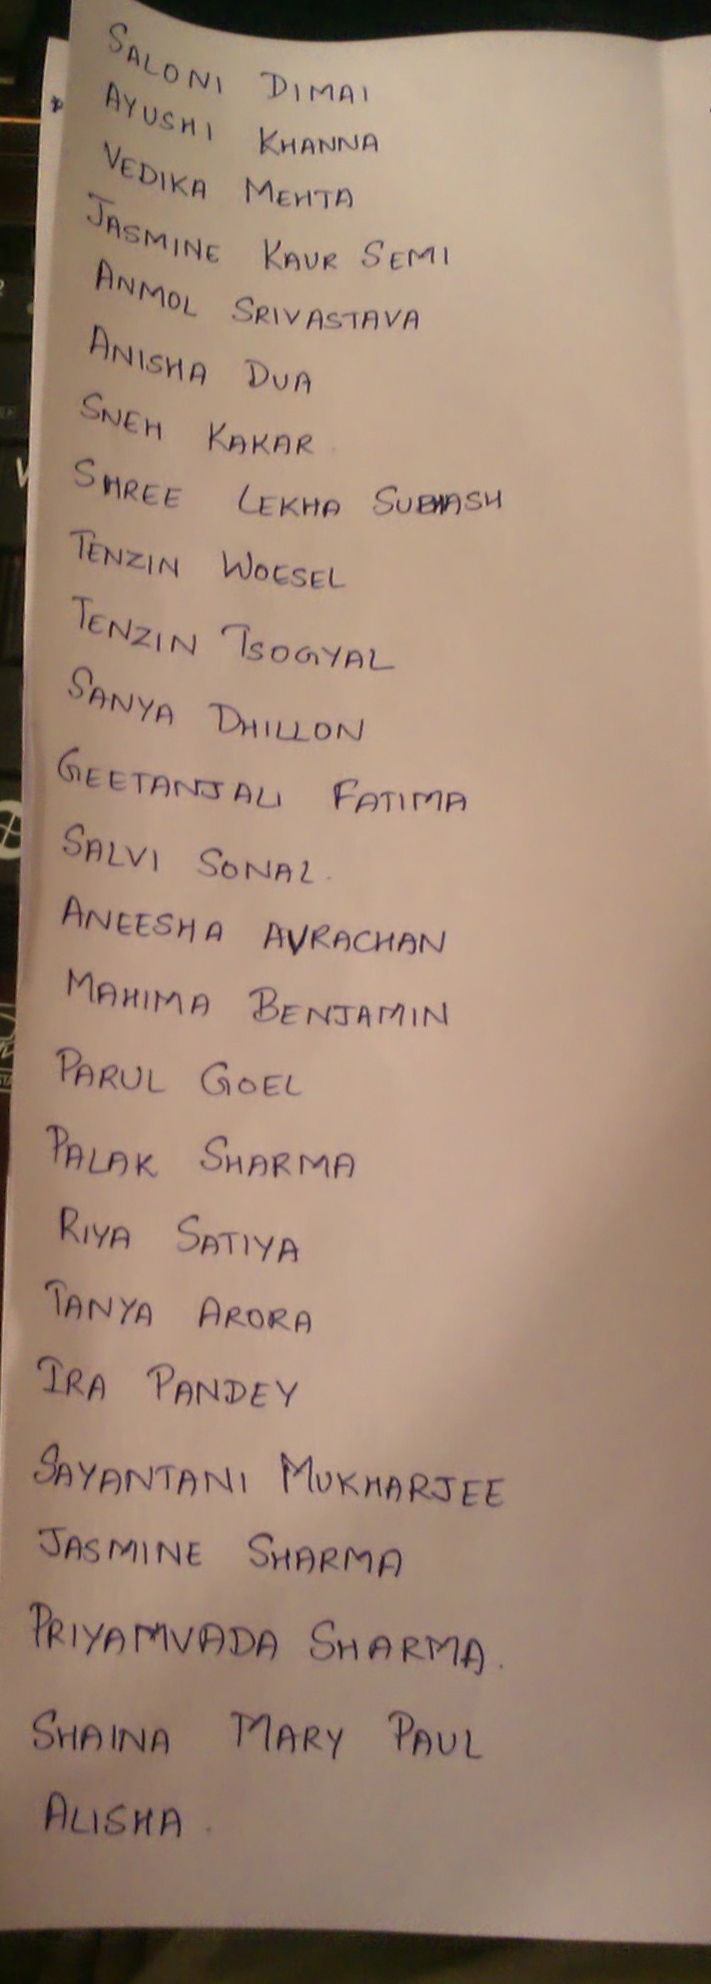 SALONI DIMAI
AYUSHI KHANNA
VEDIKA MEHTA
JASMINE KAUR SEMI
ANMOL SRIVASTAVA
ANISHA DUA
SNEH KAKAR
SHREE LEKHA SUBHASH
TENZIN WOESEL
TENZIN TSOGYAL
SANYA DHILLON
GEETANJALI FATIMA
SALVI SONAL.
ANEESHA AVRACHAN
MAHIMA BENJAMIN
PARUL GOEL
PALAK SHARMA
RIYA SATIYA
TANYA ARORA
IRA PANDEY
SAYANTANI MUKHARJEE
JASMINE SHARMA
PRIYAMVADA SHARMA.
SHAINA MARY PAUL
ALISHA.